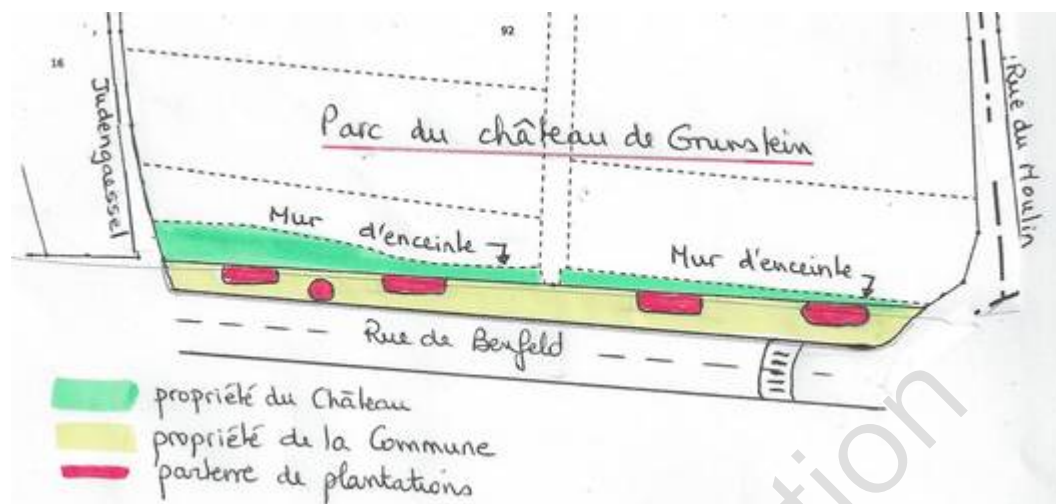 92
16
Judengaessel
Rue du Moulin
Parc du château de Grunstein
Mur d'enceinte
Mur d'enceinte
Rue de Benfeld
propriété du Château
propriété de la Commune
parterre de plantations